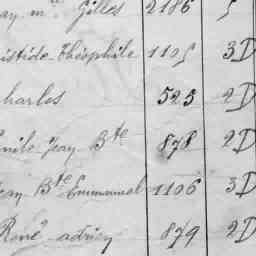 ay m.el Gilles 2186 5
istide Théophile 1105 3D
harles 523 2D
mile Jean Bte 878 2D
ean Bte Emmanuel 1106 3D
René adrien 879 2D